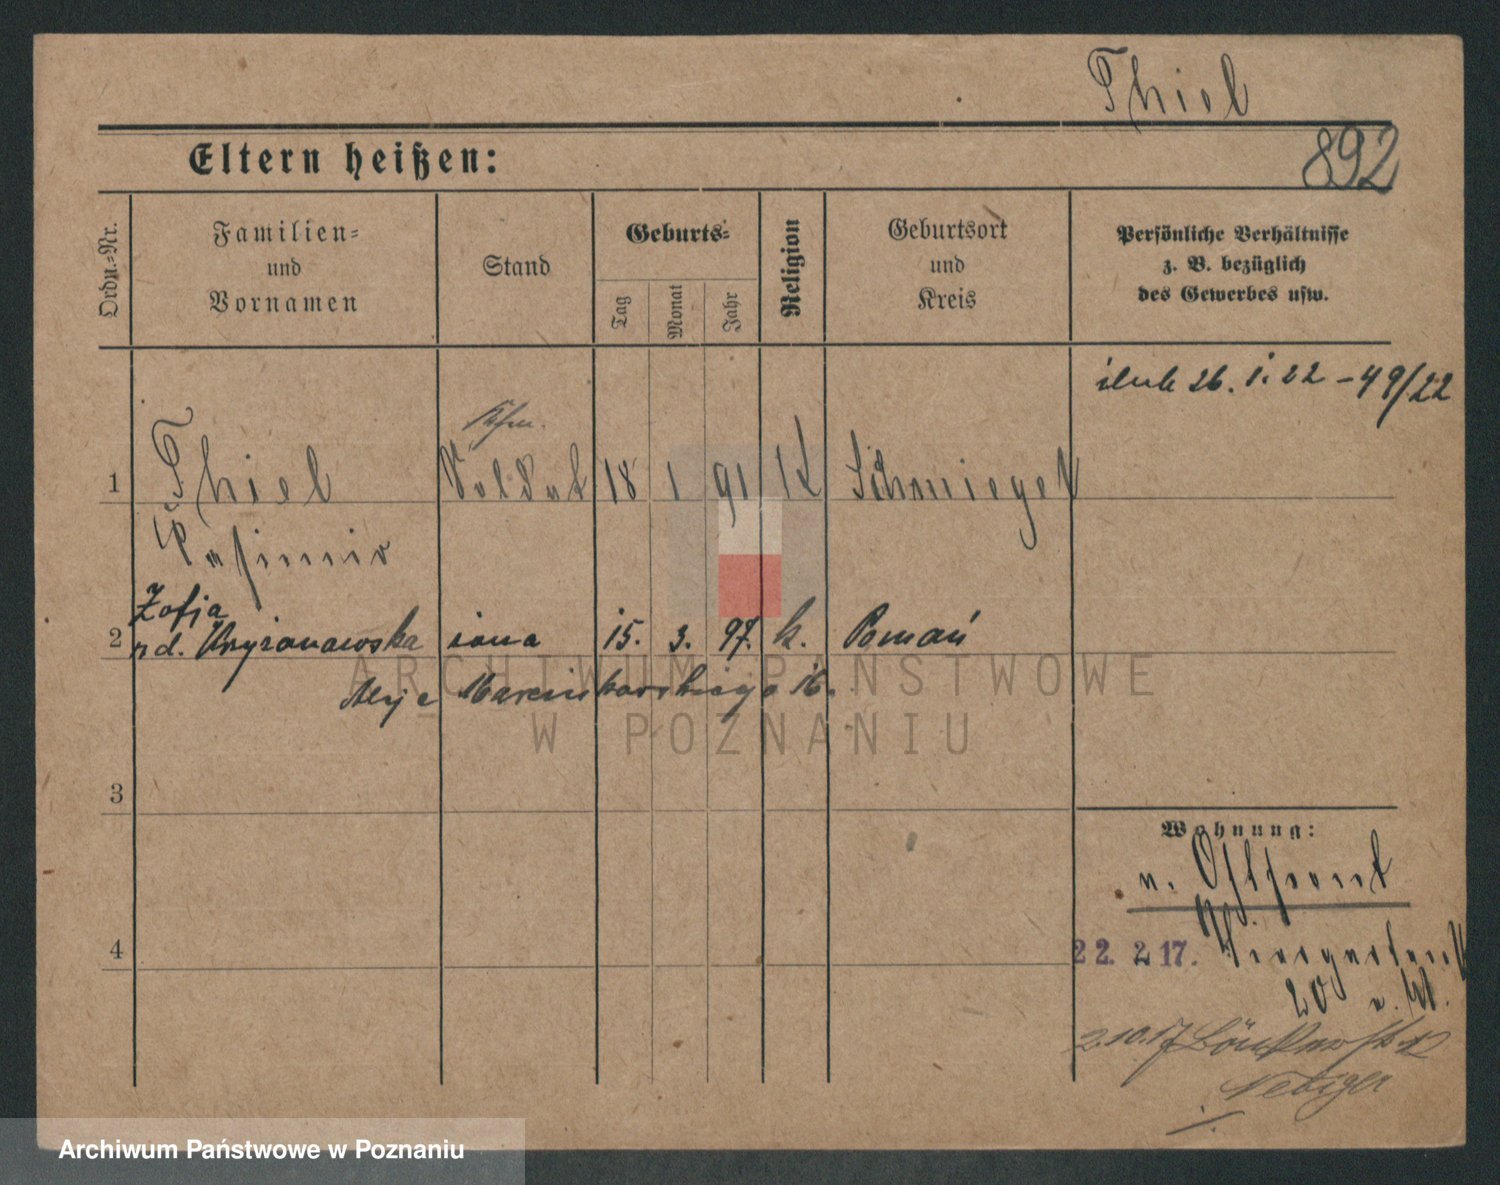 Thiel
892
Eltern heißen:
Ordn.-Nr.
Familien-
und
Vornamen
Stand
Geburts-
Tag
Monat
Jahr
Religion
Geburtsort
und
Kreis
Persönliche Verhältnisse
z. B. bezüglich
des Gewerbes usw.
ślub 26. I. 22 – 49/22
Kfm.
1 Thiel Soldat 18 1 91 K Schmiegel
Kasimir
Zofja
2 rd. Kryżanowska żona 15. 3. 97. k. Poznań
Aleje Marcinkowskiego 16.
3
Wohnung:
n. Ostfront
4
22. 2 17.
20
2.10.17
ARCHIWUM PAŃSTWOWE
W POZNANIU
Archiwum Państwowe w Poznaniu